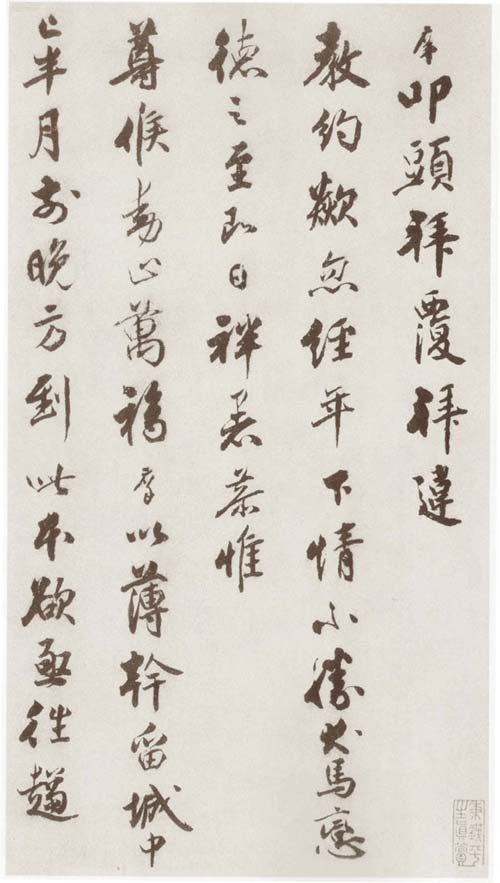 叩頭拜覆拜違
教約歘忽經年下情不勝犬馬戀
德之至即日袢暑恭惟
尊候動止萬福以薄幹留城中
已半月前晚方到此本欲亟往趨
平生真賞